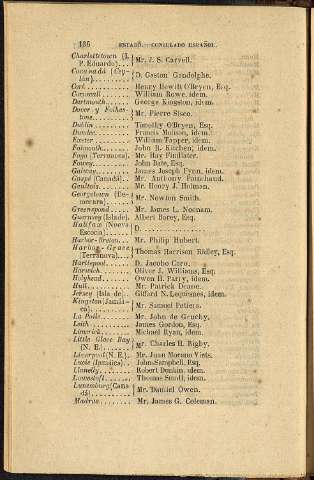 136 ESTADO.—CONSULADO ESPAÑOL.
Charlottetown (I.
P. Eduardo)... Mr. J. S. Carvell.
Cocanadá (Cey-
lán)... D. Gaston Gandolphe.
Cork... Henry Hewitt O'Bryen, Esq.
Cornwall... William Rowe, idem.
Dartmouth... George Kingston, idem.
Dover y Folkes-
tone... Mr. Pierre Sisco.
Dublin... Timothy O'Bryen, Esq.
Dundee... Francis Molison, idem.
Exeter... William Tapper, idem.
Falmouth... John B. Kitchen, idem.
Fogo (Terranova). Mr. Hay Findlater.
Fowey... John Bate, Esq.
Galway... James Joseph Fynn, idem.
Gaspé (Canadá). Mr. Anthony Painchaud.
Gaultois... Mr. Henry J. Holman.
Georgetown (De-
merara)... Mr. Newton Smith.
Greenspond... Mr. James L. Noonam.
Guernsey (Islade). Albert Borey, Esq.
Halifax (Nueva
Escocia)... D.
Harbor-Breton... Mr. Philip Hubert.
Harbor-Grace
(Terranova)... Thomas Harrison Ridley, Esq.
Hartlepool... D. Jacobo Coro.
Harwich... Oliver J. Williams, Esq.
Holyhead... Owen H. Parry, idem.
Hull... Mr. Patrick Deane.
Jersey (Isla de). Giffard N. Lequesnes, idem.
Kingston (Jamái-
ca)... Mr. Samuel Potiers.
La Poile... Mr. John de Gruchy.
Leith... James Gordon, Esq.
Limerick... Michael Ryan, idem.
Little Glace Bay
(N. E.)... Mr. Charles H. Rigby.
Liverpool (N. E.). Mr. Juan Moreno Viets.
Lucia (Jamáica). John Campbell, Esq.
Llanelly... Robert Dunkin, idem.
Lowestoft... Thomas Small, idem.
Lunenburg (Cana-
dá)... Mr. Daniel Owen.
Madras... Mr. James G. Coleman.